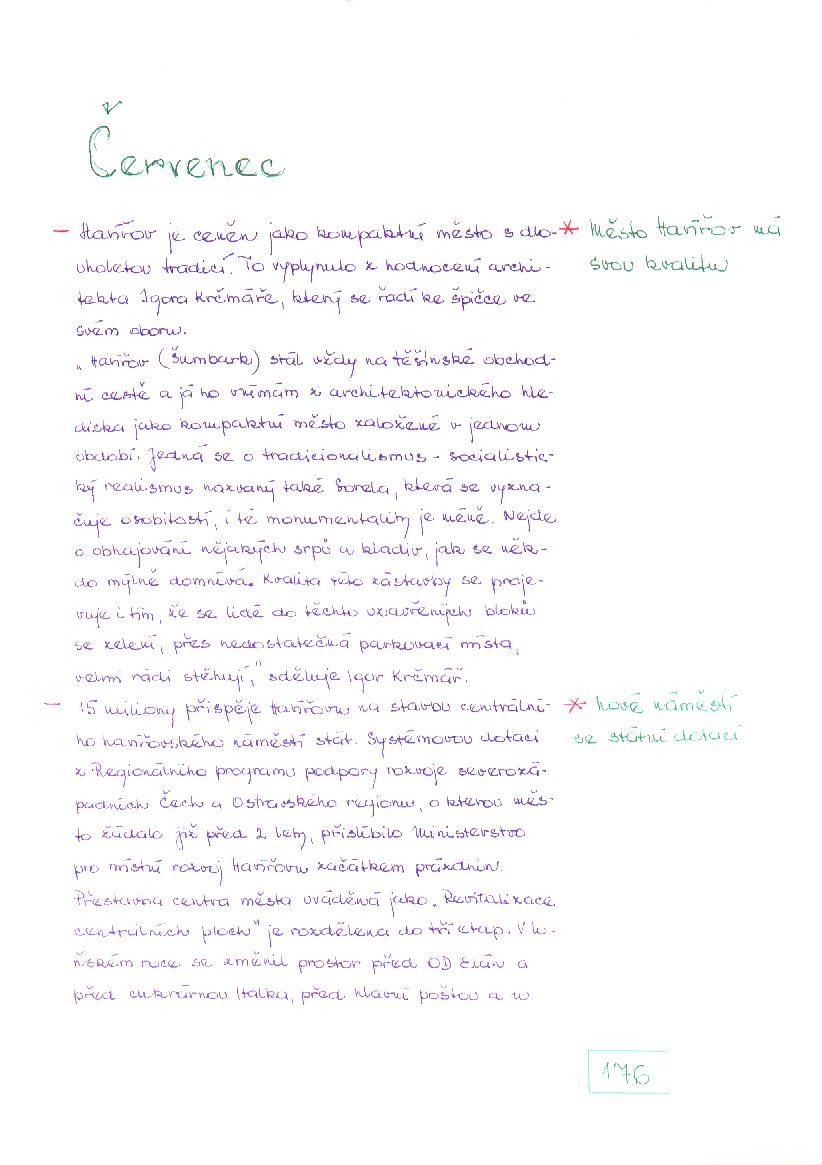 Červenec
- Havířov je ceněn jako kompaktní město s dlo-
uholetou tradicí. To vyplynulo z hodnocení archi-
tekta Igora Krčmáře, který se řadí ke špičce ve
svém oboru.
„Havířov (Šumbark) stál vždy na těšínské obchod-
ní cestě a já ho vnímám z architektonického hle-
diska jako kompaktní město založené v jednom
období. Jedná se o tradicionalismus - socialistic-
ký realismus nazvaný také Sorela, která se vyzna-
čuje osobitostí, i té monumentality je méně. Nejde
o obhajování nějakých srpů a kladiv, jak se něk-
do mýlně domnívá. Kvalita této zástavby se proje-
vuje i tím, že se lidé do těchto uzavřených bloků
se zelení, přes nedostatečná parkovací místa,
velmi rádi stěhují," sděluje Igor Krčmář.
- 15 miliony přispěje Havířovu na stavbu centrální-
ho havířovského náměstí stát. Systémovou dotaci
z Regionálního programu podpory rozvoje severozá-
padních Čech a Ostravského regionu, o kterou měs-
to žádalo již před 2 lety, přislíbilo Ministerstvo
pro místní rozvoj Havířovu začátkem prázdnin.
Přestavba centra města uváděná jako „Revitalizace
centrálních ploch" je rozdělena do tří etap. V lo-
ňském roce se změnil prostor před OD Elán a
před cukrárnou Italka, před hlavní poštou a u
* Město Havířov má
svou kvalitu
* Nové náměstí
se státní dotací
176